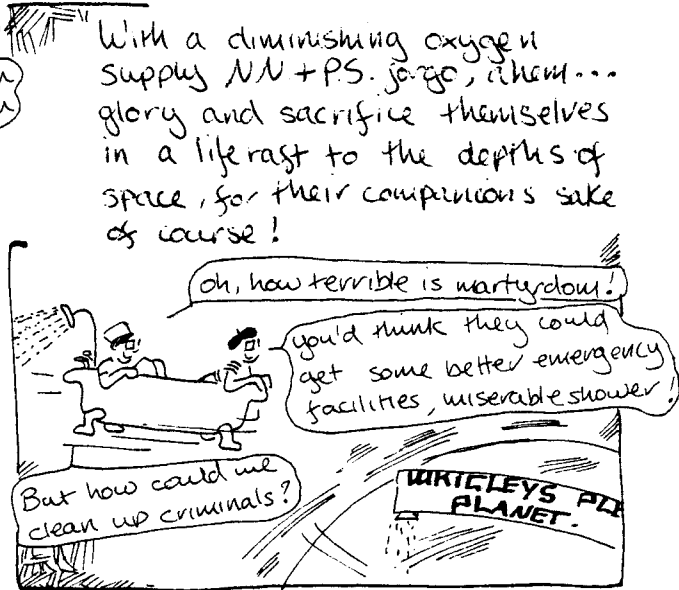 With a diminishing oxygen
supply NN + P.S. forgo, ahem...
glory and sacrifice themselves
in a life raft to the depths of
space, for their companions sake
of course!
oh, how terrible is martyrdom!
you'd think they could
get some better emergency
facilities, miserable shower!
But how could we
clean up criminals?
WRIGLEYS
PLANET.